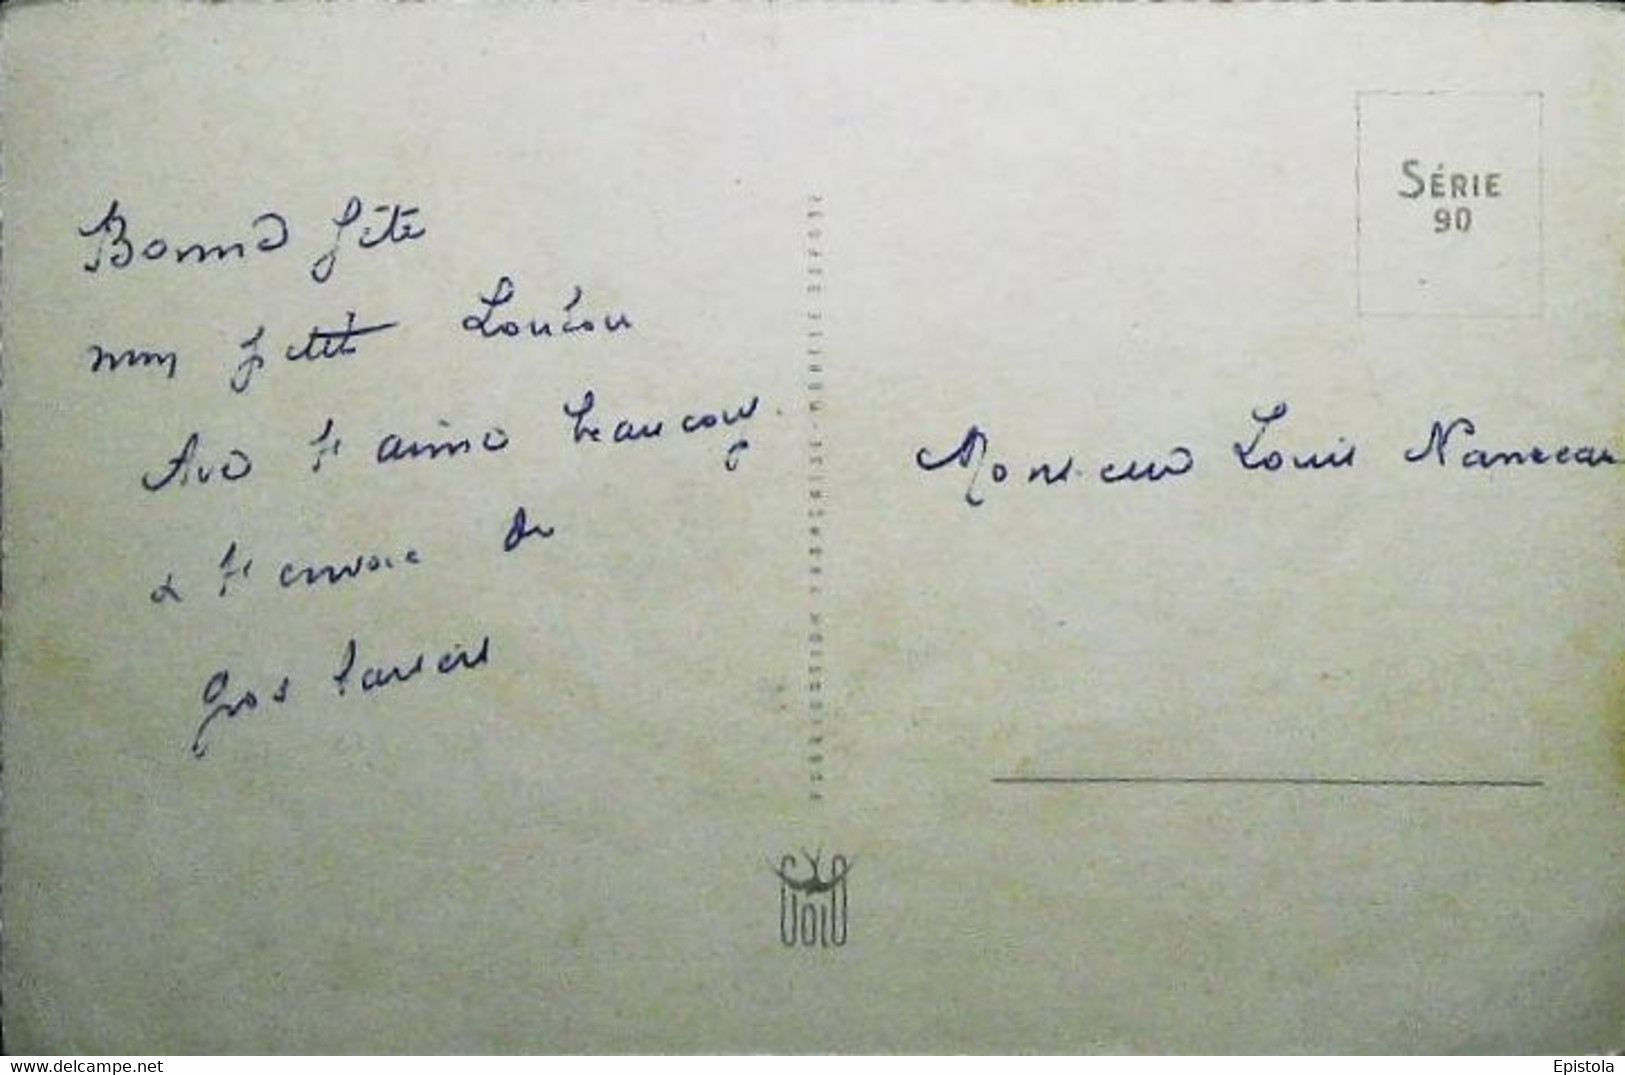 Bonne fête
mon petit Loulou
t'aime beaucoup
& t'envoie de
gros baisers
SÉRIE
90
Monsieur Louis
IMPRESSION FRANÇAISE - MODÈLE DÉPOSÉ
www.delcampe.net
Epistola